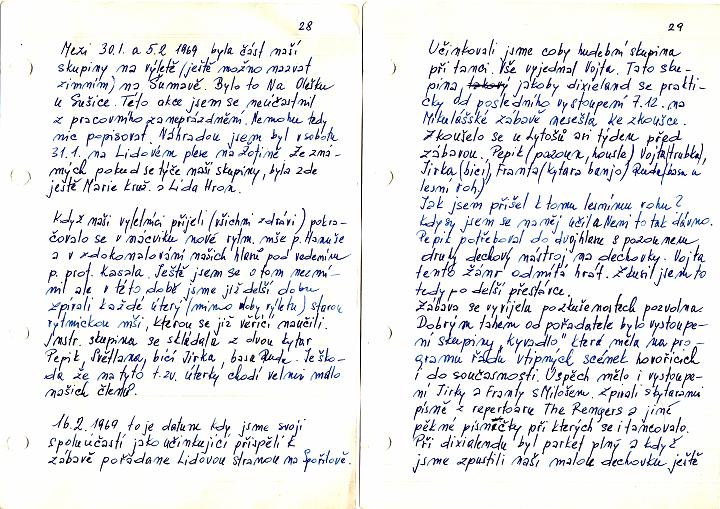 28
Mezi 30.1. a 5.2 1969 byla část naší
skupiny na výletě (ještě možno nazvat
zimním) na Šumavě. Bylo to Na Olešku
u Sušice. Této akce jsem se neúčastnil
z pracovního zaneprázdnění. Nemohu tedy
nic popisovat. Náhradou jsem byl v sobotu
31.1. na Lidovém plese na Žofíně. Ze zná-
mých pokud se týče naší skupiny, byla zde
ještě Marie Kruž. a Lída Hron.
Když naši výletníci přijeli (všichni zdrávi) pokra-
čovalo se v nácviku nové rytm. mše p. Hanuše
a v zdokonalování našich hlasů pod vedením
p. prof. Kasala. Ještě jsem se o tom nezmí-
nil ale v této době jsme již delší dobu
zpívali každé úterý (mimo doby výletu) starou
rytmickou mši, kterou se již věřící naučili.
Instr. skupina se skládala z dvou kytar
Pepík, Světlana, bicí Jirka, basa Ruda. Je ško-
da že na tyto t.zv. úterky chodí velmi málo
našich členů.
16.2. 1969 to je datum kdy jsme svojí
spoluúčastí jako účinkující přispěli k
zábavě pořádané Lidovou stranou na Spořilově.
29
Účinkovali jsme coby hudební skupina
při tanci. Vše vyjednal Vojta. Tato sku-
pina, jakoby dixieland se prakti-
cky od posledního vystoupení 7.12. na
Mikulášské zábavě nesešla ke zkoušce.
Zkoušelo se u Lytošů asi týden před
zábavou. Pepík (pozoun, housle) Vojta (trubka),
Jirka (bicí), Franta (kytara banjo) Ruda (basa a
lesní roh)
Jak jsem přišel k tomu lesnímu rohu?
Kdysi jsem se na něj učil a Není to tak dávno.
Pepík potřeboval do dvojhlasu s pozounem
druhý dechový nástroj na dechovky. Vojta
tento žánr odmítá hrát. Zkusil jsem to
tedy po delší přestávce.
Zábava se vyvíjela po zkušenostech pozvolna.
Dobrým tahem od pořadatele bylo vystoupe-
ní skupiny „Kyvadlo" která měla na pro-
gramu řadu vtipných scének hovořících
i do současnosti. Úspěch mělo i vystoupe-
ní Jirky a Franty s Milošem. Zpívali s kytarami
písně z repertoáru The Rengers a jiné
pěkné písničky při kterých se i tancovalo.
Při dixielendu byl parket plný a když
jsme zpustili naši malou dechovku ještě